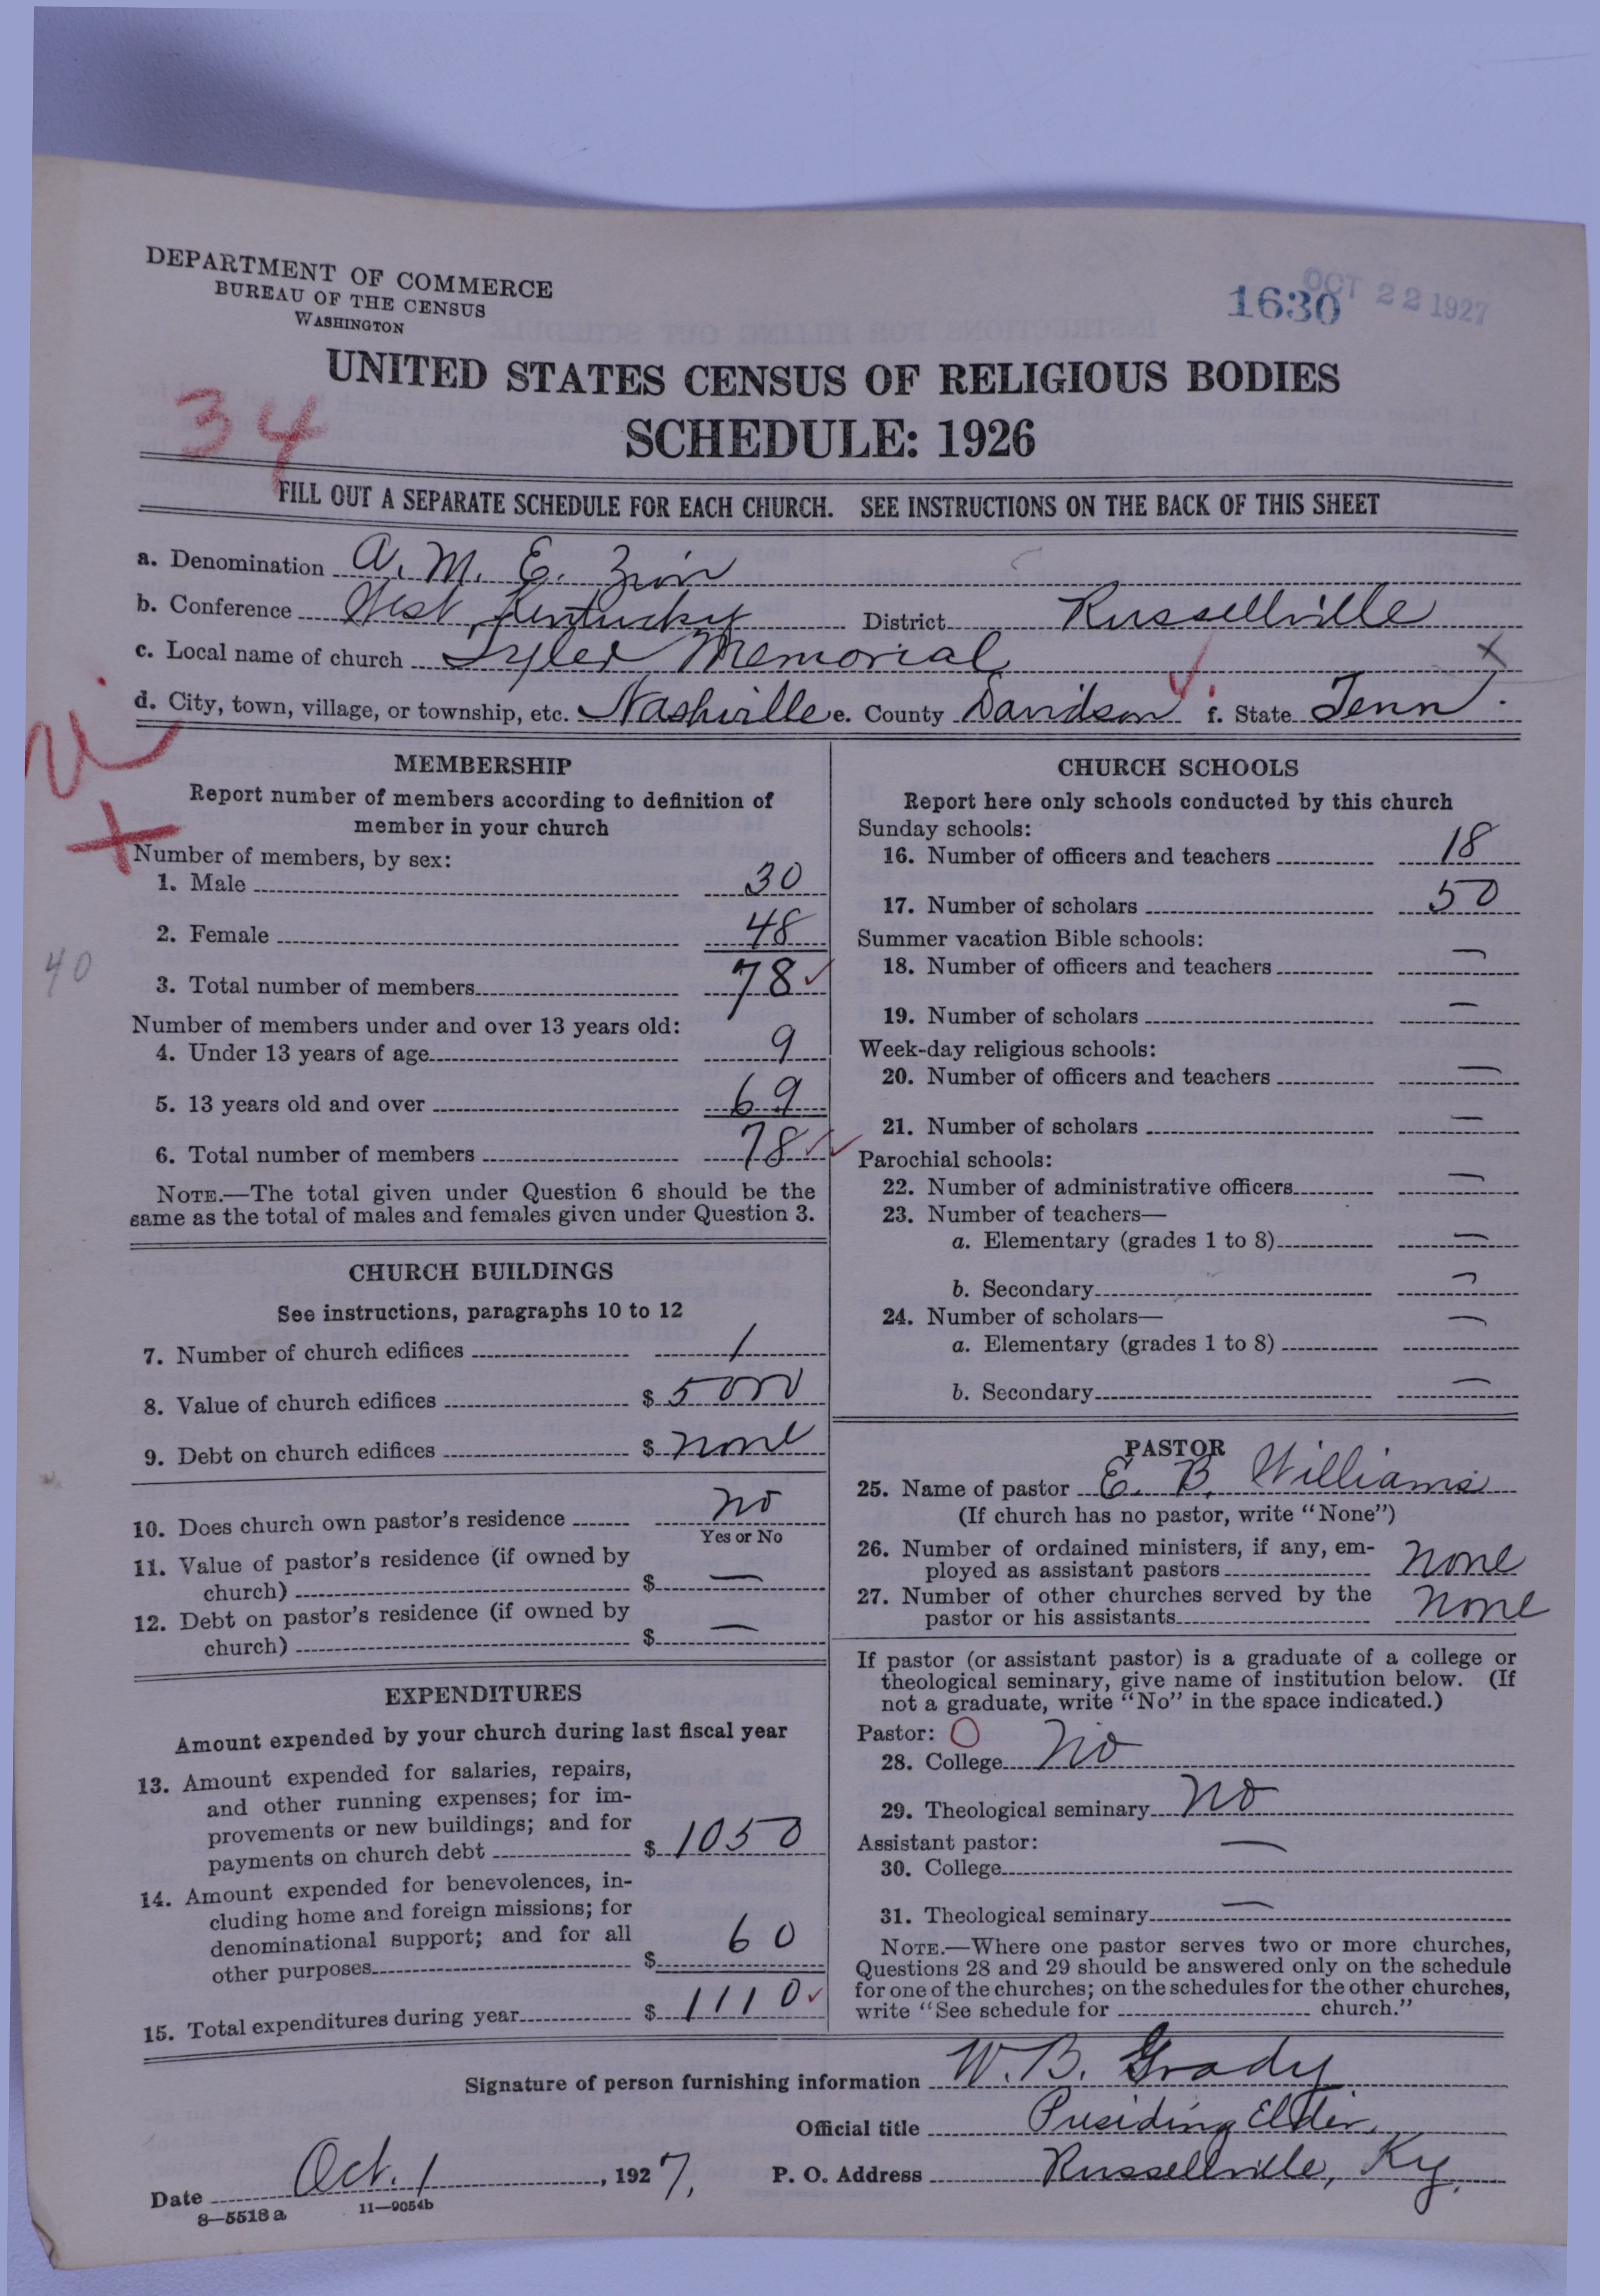 DEPARTMENT OF COMMERCE
BUREAU OF THE CENSUS
WASHINGTON
1630
OCT 22 1927
UNITED STATES CENSUS OF RELIGIOUS BODIES
34
SCHEDULE: 1926
FILL OUT A SEPARATE SCHEDULE FOR EACH CHURCH. SEE INSTRUCTIONS ON THE BACK OF THIS SHEET
a. Denomination A. M. E. Zion
b. Conference West Kentucky District Russellville
c. Local name of church Tyler Memorial x
d. City, town, village, or township, etc. Nashville e. County Davidson f. State Tenn.
MEMBERSHIP
Report number of members according to definition of
member in your church
+
Number of members, by sex:
1. Male 30
2. Female 48
40
3. Total number of members 78 ✓
Number of members under and over 13 years old:
4. Under 13 years of age 9
5. 13 years old and over 69
6. Total number of members 78 ✓✓
NOTE.—The total given under Question 6 should be the
same as the total of males and females given under Question 3.
CHURCH BUILDINGS
See instructions, paragraphs 10 to 12
7. Number of church edifices 1
8. Value of church edifices $ 5000
9. Debt on church edifices $ none
10. Does church own pastor's residence no
Yes or No
11. Value of pastor's residence (if owned by
church) $ —
12. Debt on pastor's residence (if owned by
church) $ —
EXPENDITURES
Amount expended by your church during last fiscal year
13. Amount expended for salaries, repairs,
and other running expenses; for im-
provements or new buildings; and for
payments on church debt $ 1050
14. Amount expended for benevolences, in-
cluding home and foreign missions; for
denominational support; and for all
other purposes $ 60
15. Total expenditures during year $ 1110 ✓
CHURCH SCHOOLS
Report here only schools conducted by this church
Sunday schools:
16. Number of officers and teachers 18
17. Number of scholars 50
Summer vacation Bible schools:
18. Number of officers and teachers —
19. Number of scholars —
Week-day religious schools:
20. Number of officers and teachers —
21. Number of scholars —
Parochial schools:
22. Number of administrative officers —
23. Number of teachers—
a. Elementary (grades 1 to 8) —
b. Secondary —
24. Number of scholars—
a. Elementary (grades 1 to 8) —
b. Secondary —
PASTOR
25. Name of pastor E. B. Williams
(If church has no pastor, write "None")
26. Number of ordained ministers, if any, em-
ployed as assistant pastors none
27. Number of other churches served by the
pastor or his assistants none
If pastor (or assistant pastor) is a graduate of a college or
theological seminary, give name of institution below. (If
not a graduate, write "No" in the space indicated.)
Pastor: O
28. College no
29. Theological seminary no
Assistant pastor: —
30. College
31. Theological seminary —
NOTE.—Where one pastor serves two or more churches,
Questions 28 and 29 should be answered only on the schedule
for one of the churches; on the schedules for the other churches,
write "See schedule for church."
Signature of person furnishing information W. B. Grady
Official title Presiding Elder
Date Oct. 1, 1927. P. O. Address Russellville, Ky.
8—5518 a 11—9054b